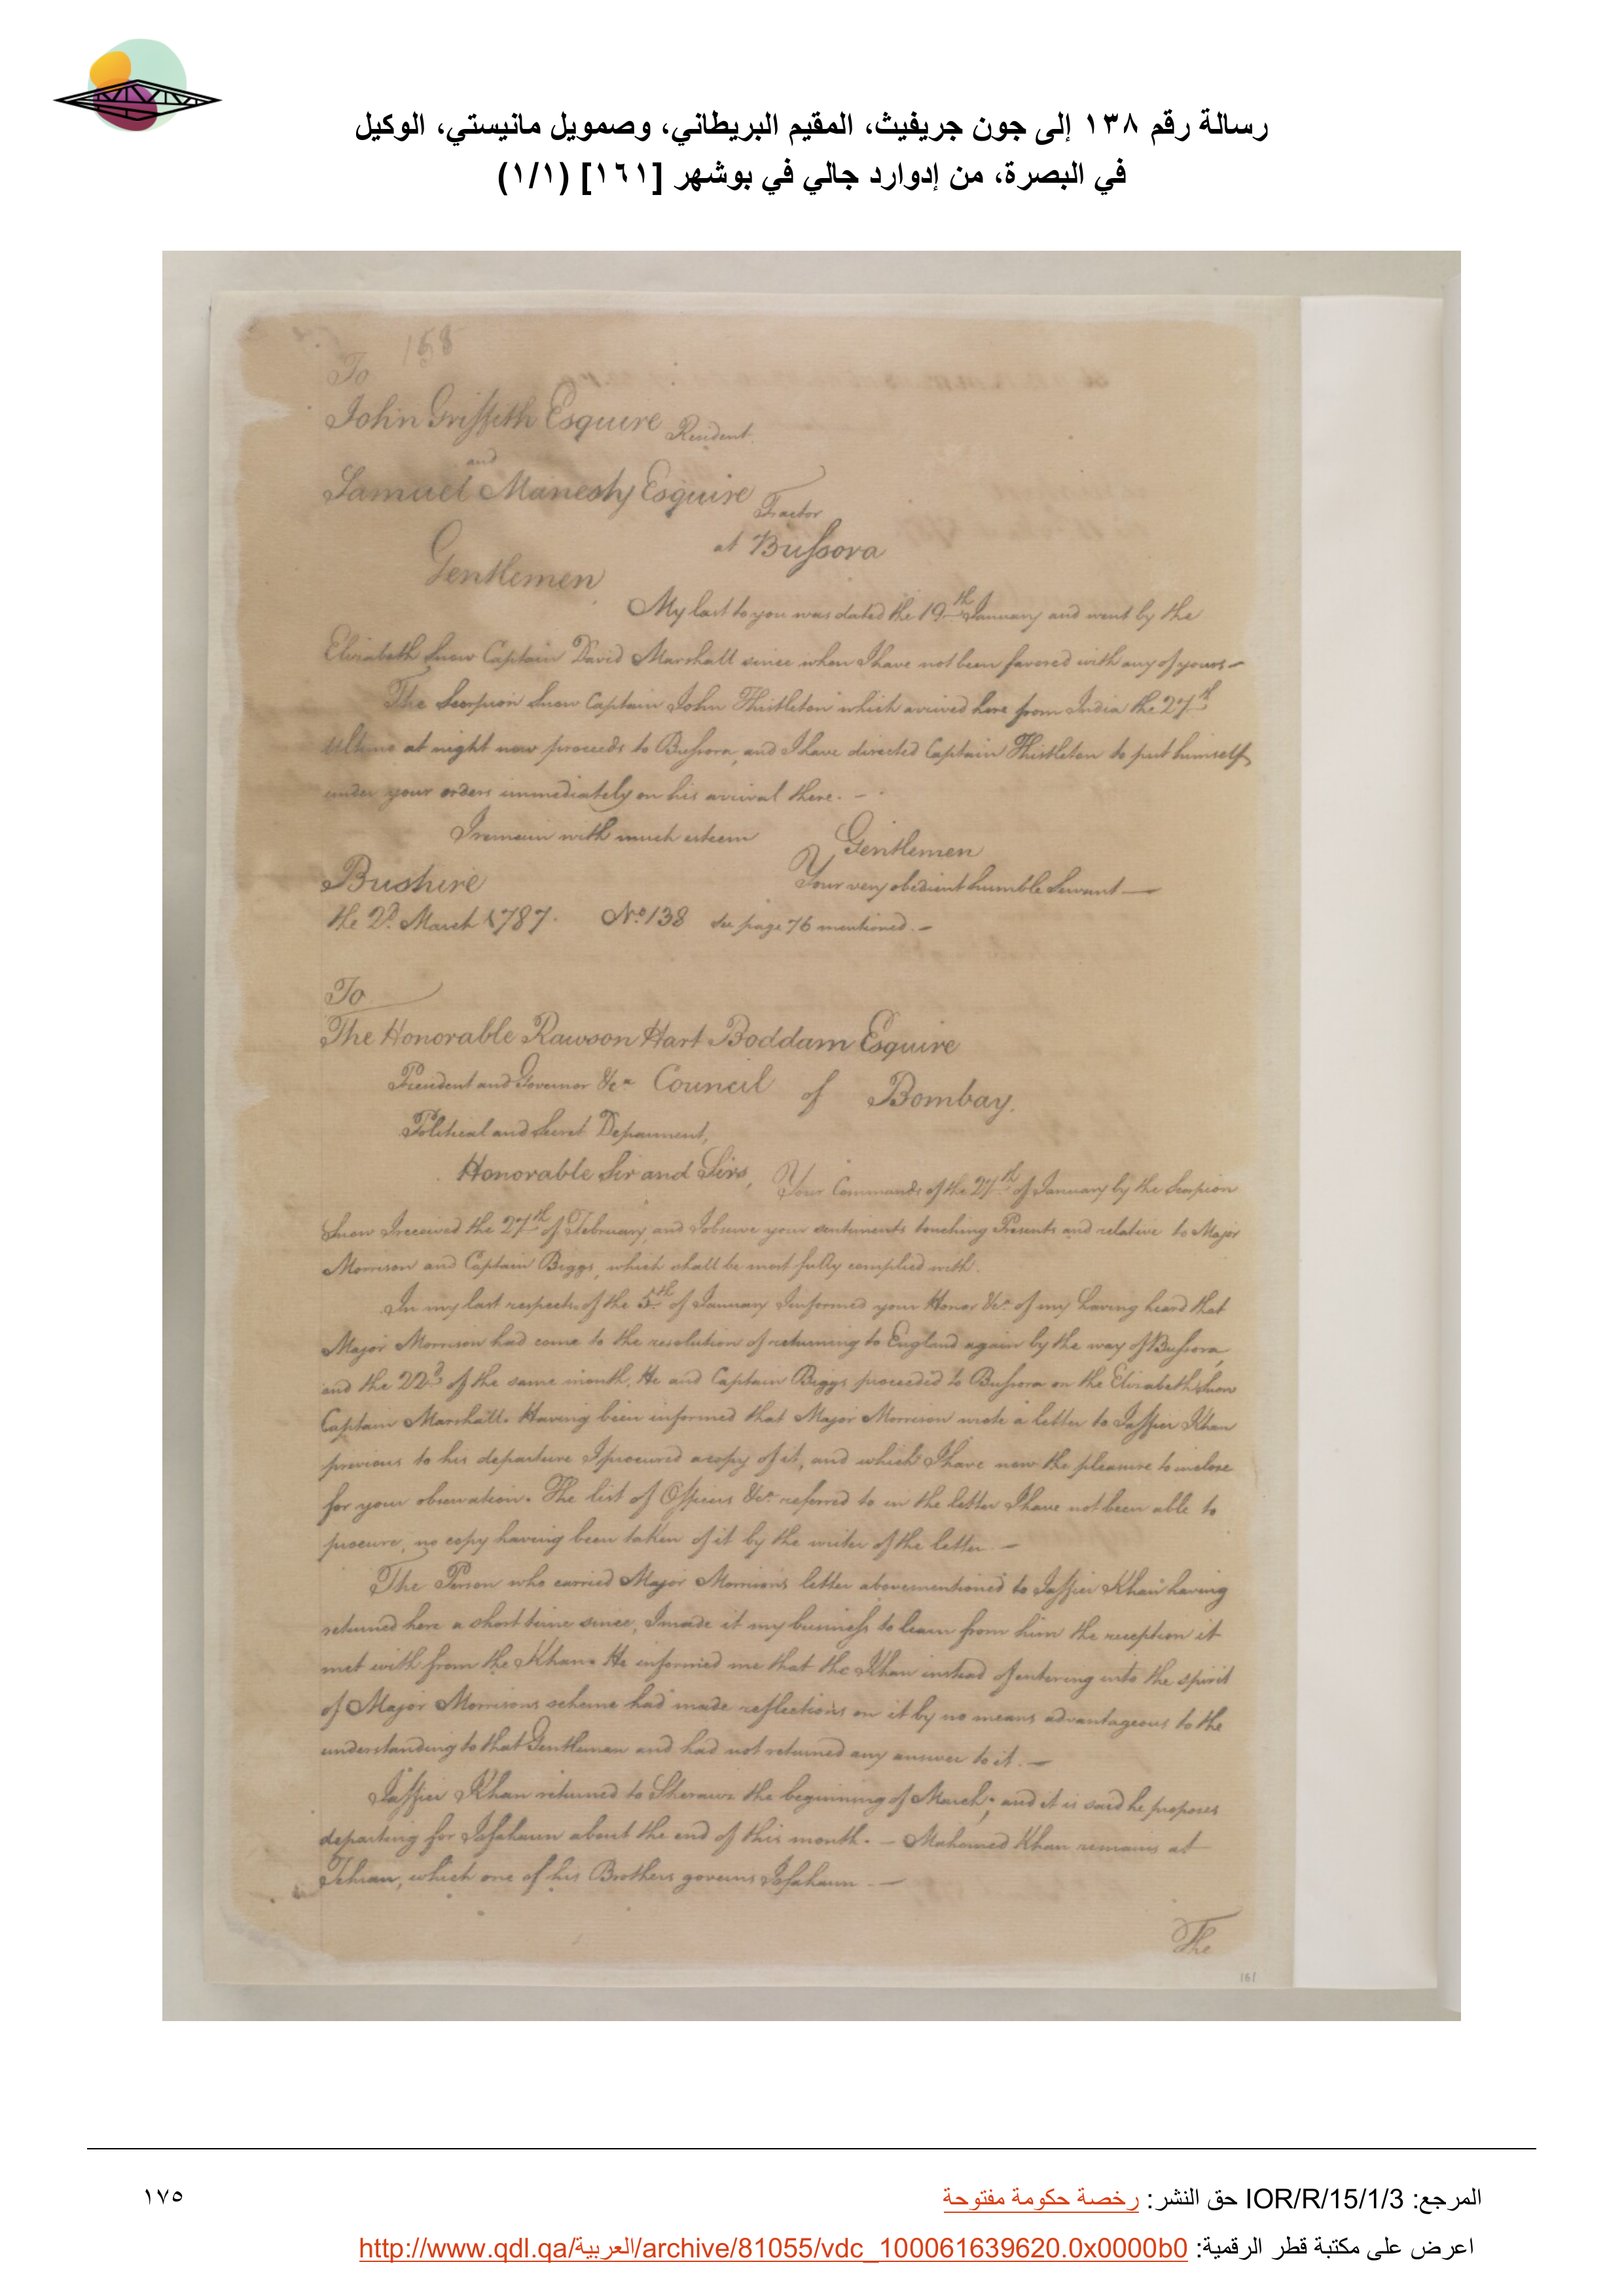 رسالة رقم ١٣٨ إلى جون جريفيث، المقيم البريطاني، وصمويل مانيستي، الوكيل
في البصرة، من إدوارد جالي في بوشهر [١٦١] (١/١)
168
To
John Griffith Esquire Resident
and
Samuel Manesty Esquire Factor
at Bussora
Gentlemen
My last to you was dated the 19th January and went by the
Elizabeth Snow Captain David Marshall since when I have not been favored with any of yours—
The Scorpion Snow Captain John Thistleton which arrived here from India the 27th
Ultimo at night now proceeds to Bussora, and I have directed Captain Thistleton to put himself
under your orders immediately on his arrival there. -
I remain with much esteem Gentlemen
Bushire Your very obedient humble Servant—
the 2d. March 1787. No. 138 see page 76 mentioned.—
To
The Honorable Rawson Hart Boddam Esquire
President and Governor &ca Council of Bombay.
Political and Secret Deparment,
Honorable Sir and Sirs, Your Commands of the 27th of January by the Scorpion
Snow I received the 27th of February, and I observe your sentiments touching Presents and relative to Major
Morrison and Captain Biggs, which shall be most fully complied with.
In my last respects of the 5th of January I informed your Honor &ca of my having heard that
Major Morrison had come to the resolution of returning to England again by the way of Bussora,
and the 22d of the same month, He and Captain Biggs proceeded to Bussora on the Elizabeth Snow
Captain Marshall. Having been informed that Major Morrison wrote a letter to Jaffier Khan
previous to his departure I procured a copy of it, and which I have now the pleasure to inclose
for your observation. The list of Officers &ca referred to in the letter I have not been able to
procure, no copy having been taken of it by the writer of the letter.—
The Person who carried Major Morrisons letter abovementioned to Jaffier Khan having
returned here a short time since, I made it my business to learn from him the reception it
met with from the Khan. He informed me that the Khan instead of entering into the spirit
of Major Morrisons scheme had made reflections on it by no means advantageous to the
understanding to that Gentleman and had not returned any answer to it.—
Jaffier Khan returned to Sheraus the beginning of March, and it is said he proposes
departing for Isfahaun about the end of this month. — Mahomed Khan remains at
Tehran, which one of his Brothers governs Isfahaun.—
The
161
المرجع: IOR/R/15/1/3 حق النشر: رخصة حكومة مفتوحة
١٧٥
اعرض على مكتبة قطر الرقمية: http://www.qdl.qa/العربية/archive/81055/vdc_100061639620.0x0000b0